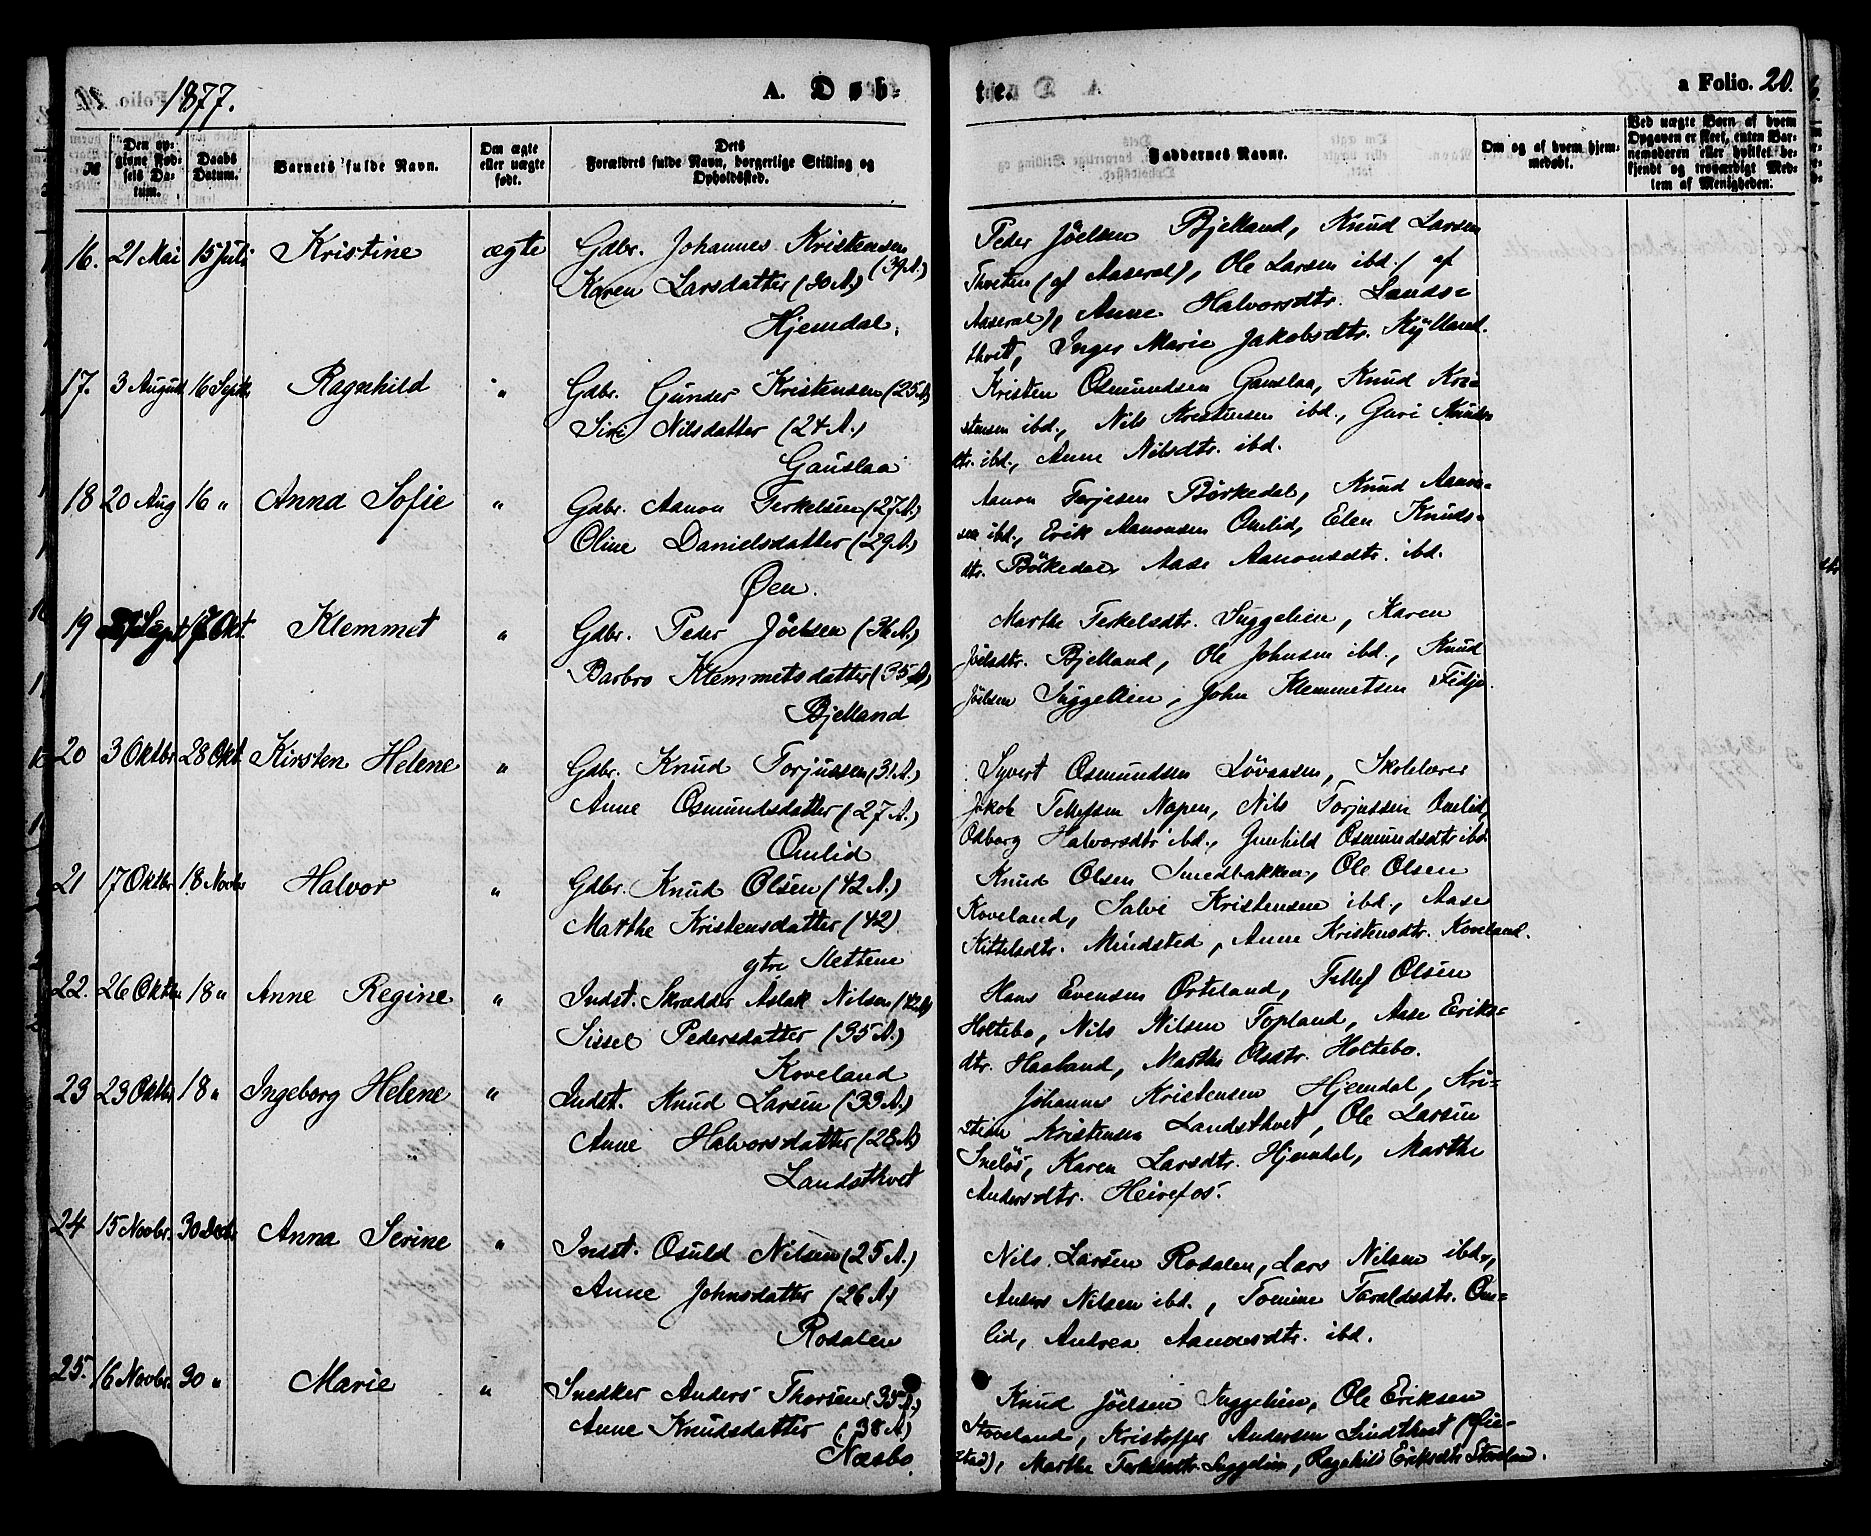 1877.
A. Døb-
No
Den op-
givne Fød-
sels Da-
tum.
Daabs
Datum.
Barnets fulde Navn.
Om ægte
eller uægte
født.
Dets
Forældres fulde Navn, borgerlige Stilling og
Opholdssted.
16. 21 Mai 15 Juli Kristine ægte Gdbr. Johannes Kristensen
(39 A.)
Karen Larsdatter (30 A.)
Hjemdal.
17. 3 August 16 Septb. Ragnhild " Gdbr. Gunder Kristensen (25 A)
Siri Nilsdatter (24 A.)
Gauslaa
18 20 Aug 16 " Anna Sofie " Gdbr. Aanon Terkelsen (27 A.)
Oline Danielsdatter (29 A.)
Øen.
19 Sept Okt. Klemmet " Gdbr. Peder Jöelsen (36 A.)
Barbro Klemmetsdatter (35 A)
Bjelland
20 3 Oktbr 28 Okt. Kirsten Helene " Gdbr. Knud Torjussen (31 A.)
Anne Osmundsdatter (27 A.)
Omlid
21 17 Oktbr 18 Novbr Halvor " Gdbr. Knud Olsen (42 A.)
Marthe Kristensdatter (42)
Slettene
22. 26 Oktbr 18 " Anne Regine " Indst. Skrædder Aslak Nilsen (42 A)
Sissel Pedersdatter (35 A.)
Koveland
23 23 Oktbr 18 " Ingeborg Helene " Indst. Knud Larsen (33 A.)
Anne Halvorsdatter (28 A)
Landsthvet
24 15 Novbr. 30 Decbr. Anna Serine " Indst. Osuld Nilsen (25 A.)
Anne Johnsdatter (26 A.)
Rosalen
25. 16 Novbr. 30 " Marie " Snedker Anders Thorsen (35 A.)
Anne Knudsdatter (38 A)
Næsbo.
te.
a Folio. 20.
Faddernes Navne.
Om og af hvem hjem-
medøbt.
Ved uægte Børn af hvem
Opgaven er skeet, enten Bar-
nemoderen eller hvilket be-
kjendt og troværdigt Med-
lem af Menigheden:
Peder Jöelsen Bjelland, Knud Larsen
Thveten (af Aaseral), Ole Larsen ibd. (af
Aaseral), Anne Halvorsdtr. Lands-
thvet, Inger Marie Jakobsdtr. Kylland.
Kristen Osmundsen Gauslaa, Knud Kri-
stensen ibd., Nils Kristensen ibd., Guri Knuds-
dtr. ibd., Anne Nilsdtr. ibd.
Aanon Terjesen Börkedal, Knud Aanon-
sen ibd., Erik Aanonsen Omlid, Elen Knuds-
dtr. Börkedal, Aase Aanonsdtr. ibd.
Marthe Terkelsdtr. Suggelien, Karen
Jöelsdtr. Bjelland, Ole Johnsen ibd., Knud
Jöelsen Suggelien, John Klemmetsen Fidje.
Syvert Osmundsen Lövaasen, Skolelærer
Jakob Tellefsen Napen, Nils Torjussen Omlid,
Odborg Halvorsdtr ibd., Gunhild Osmundsdtr ibd.
Knud Olsen Smedbakken, Ole Olsen
Koveland, Salve Kristensen ibd., Aase
Kittelsdtr. Mindsted, Anne Kristensdtr. Koveland.
Hans Evensen Örteland, Tellef Olsen
Holtebo, Nils Nilsen Topland, Aase Eriks-
dtr. Haaland, Marthe Olsdtr. Holtebo.
Johannes Kristensen Hjemdal, Kri-
stian Kristensen Landsthvet, Ole Larsen
Snelös, Karen Larsdtr. Hjemdal, Marthe
Andersdtr. Heirefos.
Nils Larsen Rosalen, Lars Nilsen ibd.,
Anders Nilsen ibd., Tomine Taraldsdtr. Om-
lid, Andrea Aanonsdtr. ibd.
Knud Jöelsen Suggelien, Ole Eriksen
Stoveland, Kristoffer Andersen Lindthvet (Øie-
stad), Marthe Terkelsdtr. Suggelien, Ragnhild Eriksdtr Stoveland.